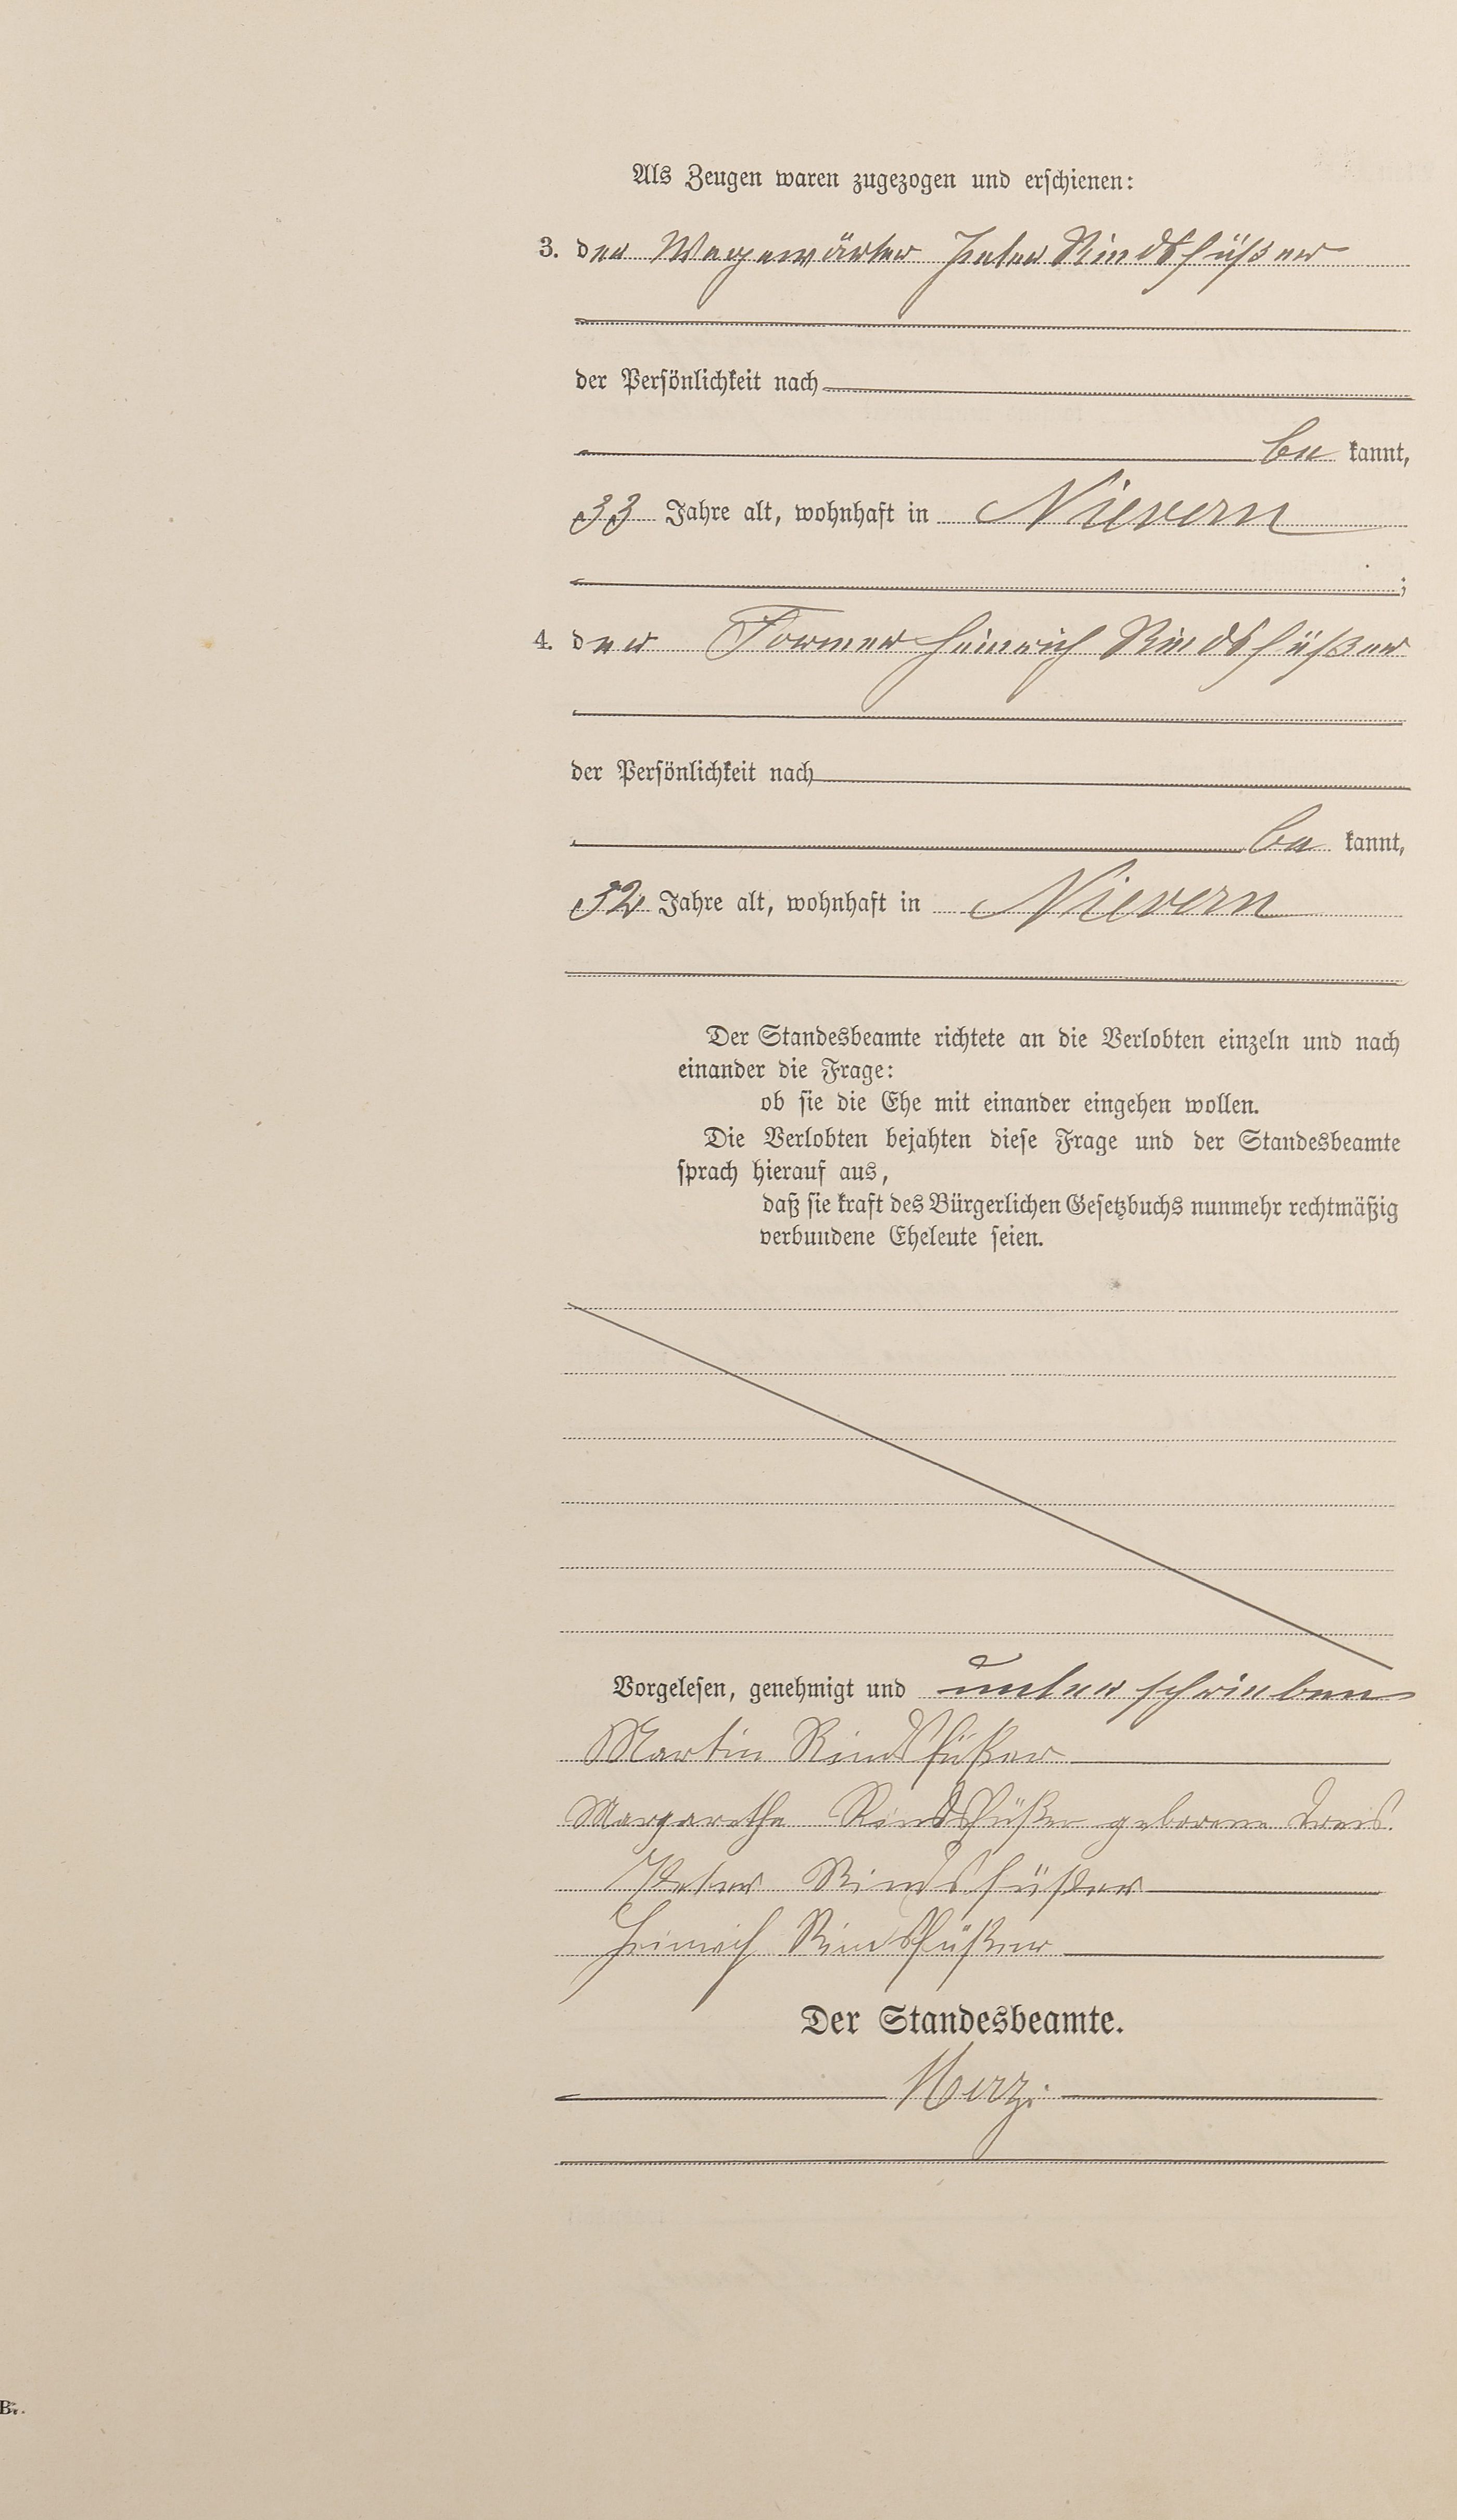 Als Zeugen waren zugezogen und erschienen:
3. der Wegewärter Peter Rindsfüßer
der Persönlichkeit nach
be kannt,
33 Jahre alt, wohnhaft in Nievern
;
4. der Former Heinrich Rindsfüßer
der Persönlichkeit nach
be kannt,
32 Jahre alt, wohnhaft in Nievern
Der Standesbeamte richtete an die Verlobten einzeln und nach
einander die Frage:
ob sie die Ehe mit einander eingehen wollen.
Die Verlobten bejahten diese Frage und der Standesbeamte
sprach hierauf aus,
daß sie kraft des Bürgerlichen Gesetzbuchs nunmehr rechtmäßig
verbundene Eheleute seien.
Vorgelesen, genehmigt und unterschrieben
Martin Rindsfüßer
Margarethe Rindsfüßer geborene
Peter Rindsfüßer
Heinrich Rindsfüßer
Der Standesbeamte.
B.